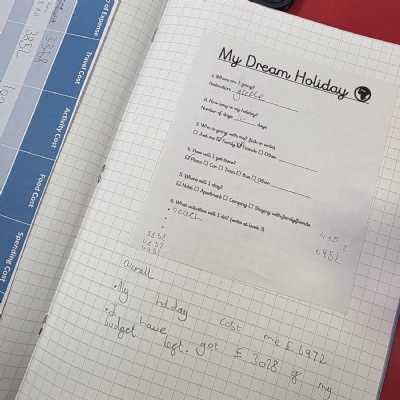 of Expense
Travel Cost
Activity Cost
Food Cost
Spending Cost
3852
My Dream Holiday
1. Where am I going?
Destination: greece
2. How long is my holiday?
Number of days: days
3. Who is going with me? (tick or write)
Just me Family Friends Other
4. How will I get there?
Plane Car Train Bus Other
5. Where will I stay?
Hotel Apartment Camping Staying with family/friends
6. What activities will I do? (write at least 3)
• beach
4952
6952
3852
4852
4952
overall
• My holiday cost me £6972
• I have got £3028 of my
budget left.